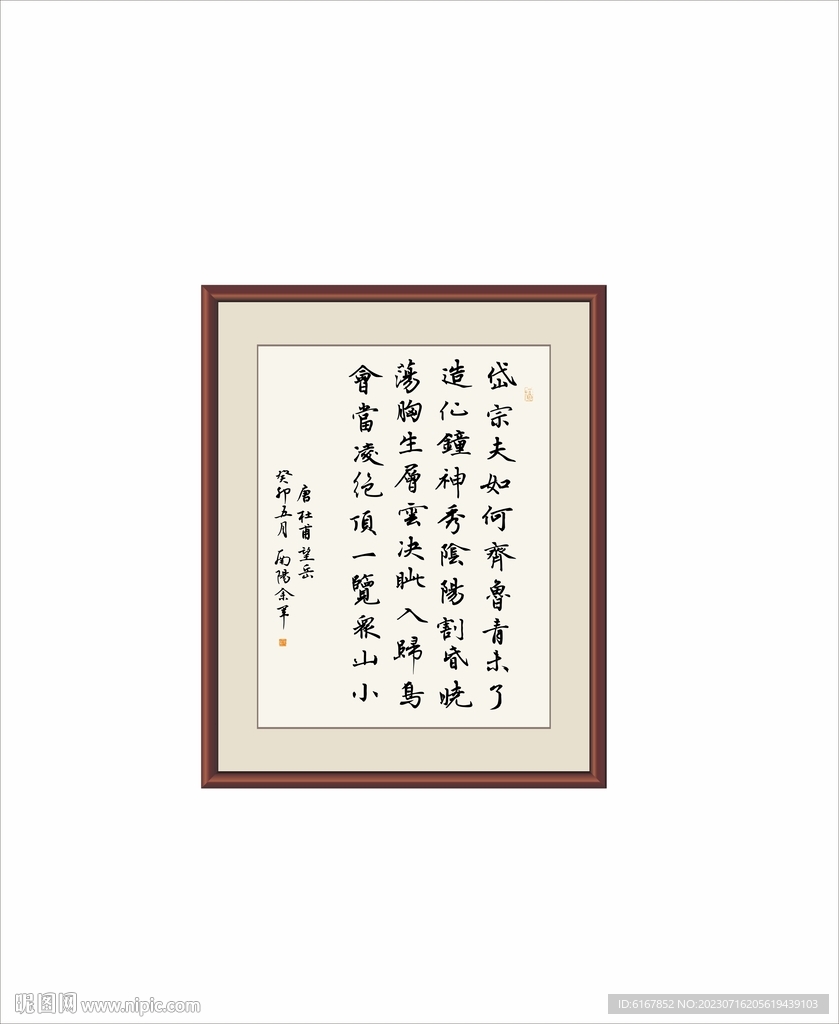 岱宗夫如何齊魯青未了
造化鐘神秀陰陽割昏曉
蕩胸生層雲决眦入歸鳥
會當凌绝頂一覽眾山小
唐杜甫望岳
癸卯五月南陽余军
昵图网 www.nipic.com
ID:6167852 NO:20230716205619439103